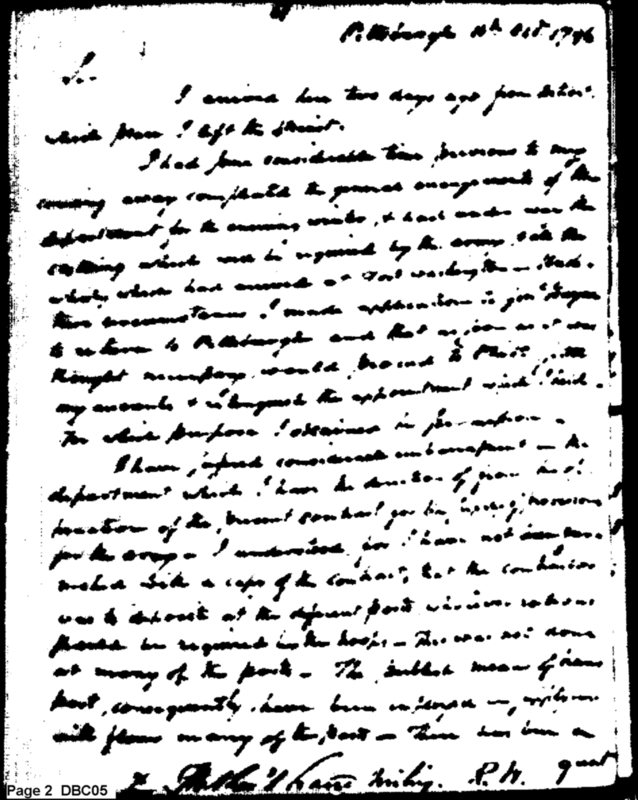 Pittsburgh 10th Oct 1796
Sir
I arrived here two days ago from Detroit
which place I left the
I had some considerable time previous to my
coming away completed the general arrangements of the
department for the ensuing winter, & had under way the
clothing which will be required by the army, & all the
which had arrived at Fort Washington
these circumstances I made application to Gen'l Wayne
to return to Pittsburgh and that as soon as it was
thought necessary would proceed to Phil'a
my accounts & relinquish the appointment which I held
For which purpose I obtained his permission
I have suffered considerable embarrassment in the
department which I have the direction of from the
of the present contract for the supply of provisions
for the army I understood, for I have not been
nished with a copy of the contract, that the contractor
was to deposit at the different posts whatever rations
should be required by the troops This was not done
at many of the posts The public means of trans
port, consequently have been employed in supplying
with flour many of the posts There has been a
great
Page 2 DBC05